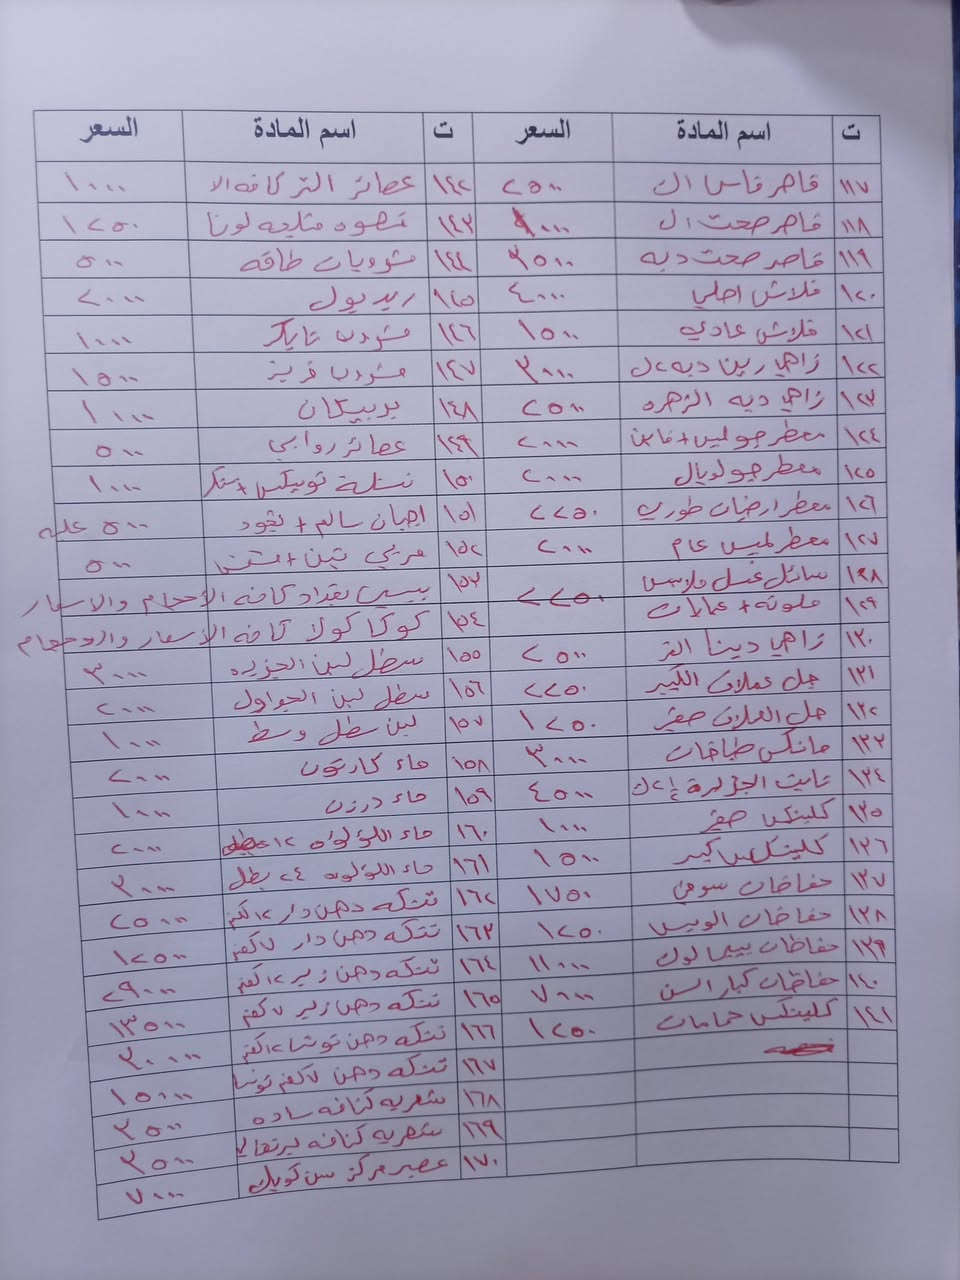 ت اسم المادة السعر ت اسم المادة السعر
١١٧ قاصر فاس ال ٢٥٠٠
١١٨ قاصر صحت ال ٩٠٠٠
١١٩ قاصر صحت دبه ٣٥٠٠
١٢٠ فلاش اصلي ٤٠٠٠
١٢١ فلاش عادي ١٥٠٠
١٢٢ زاهي رين دبه ٢ل ٣٠٠٠
١٢٣ زاهي دبه الزهره ٢٥٠٠
١٢٤ معطر جوليس + فاين ٢٠٠٠
١٢٥ معطر جولديال ٢٠٠٠
١٢٦ معطر ارضيات طوري ٢٢٥٠
١٢٧ معطر لميس عام ٢٠٠٠
١٢٨ سائل غسل ملابس ٢٢٥٠
١٢٩ ملونه + عبايات
١٣٠ زاهي دينا التر ٢٥٠٠
١٣١ جل عملاق الكبير ٢٢٥٠
١٣٢ جل العملاق صغير ١٢٥٠
١٣٣ مانكس طباخات ٣٠٠٠
١٣٤ تايت الجزيرة ٤٥٠٠
١٣٥ كلينكس صغير ١٠٠٠
١٣٦ كلينكس كبير ١٥٠٠
١٣٧ حفاضات سوفي ١٧٥٠
١٣٨ حفاضات الويس ١٢٥٠
١٣٩ حفاظات بيبي لوك ١١٠٠٠
١٤٠ حفاضات كبار السن ٧٠٠٠
١٤١ كلينكس حمامات ١٢٥٠
١٤٢ عصائر التر كافه ١٠٠٠
١٤٣ قهوه مثلجه لونا ١٢٥٠
١٤٤ مشروبات طاقه ٥٠٠
١٤٥ ريد بول ٢٠٠٠
١٤٦ مشروب تايكر ١٠٠٠
١٤٧ مشروب فريز ١٥٠٠
١٤٨ بربيكان ١٠٠٠
١٤٩ عصائر روابي ٥٠٠
١٥٠ نستلة تويكس + سنكر ١٠٠٠
١٥١ اجبان سالم + تعود ٥٠٠ علبه
١٥٢ مربى تين + مشمش ٥٠٠
١٥٣ بيبسي بغداد كافه الأحجام والاسعار
١٥٤ كوكا كولا كافه الأسعار والاحجام
١٥٥ سطل لبن الجزيره ٣٠٠٠
١٥٦ سطل لبن الجداول ٢٠٠٠
١٥٧ لبن سطل وسط ١٠٠٠
١٥٨ ماء كارتون ٢٠٠٠
١٥٩ ماء درزن ١٠٠٠
١٦٠ ماء اللؤلؤه ١٢ بطل ٢٠٠٠
١٦١ ماء اللؤلؤه ٢٤ بطل ٣٠٠٠
١٦٢ تنكه دهن دار ١٢ كغم ٢٥٠٠٠
١٦٣ تنكه دهن دار ٧ كغم ١٢٥٠٠
١٦٤ تنكه دهن زير ١٢ كغم ٢٩٠٠٠
١٦٥ تنكه دهن زير ٧ كغم ١٣٥٠٠
١٦٦ تنكه دهن توشا ١٢ كغم ٣٠٠٠٠
١٦٧ تنكه دهن ٧ كغم توشا ١٥٠٠٠
١٦٨ شعريه كنافه ساده ٣٥٠٠
١٦٩ شعريه كنافه برتقالي ٣٥٠٠
١٧٠ عصير مركز سن كويك ٧٠٠٠